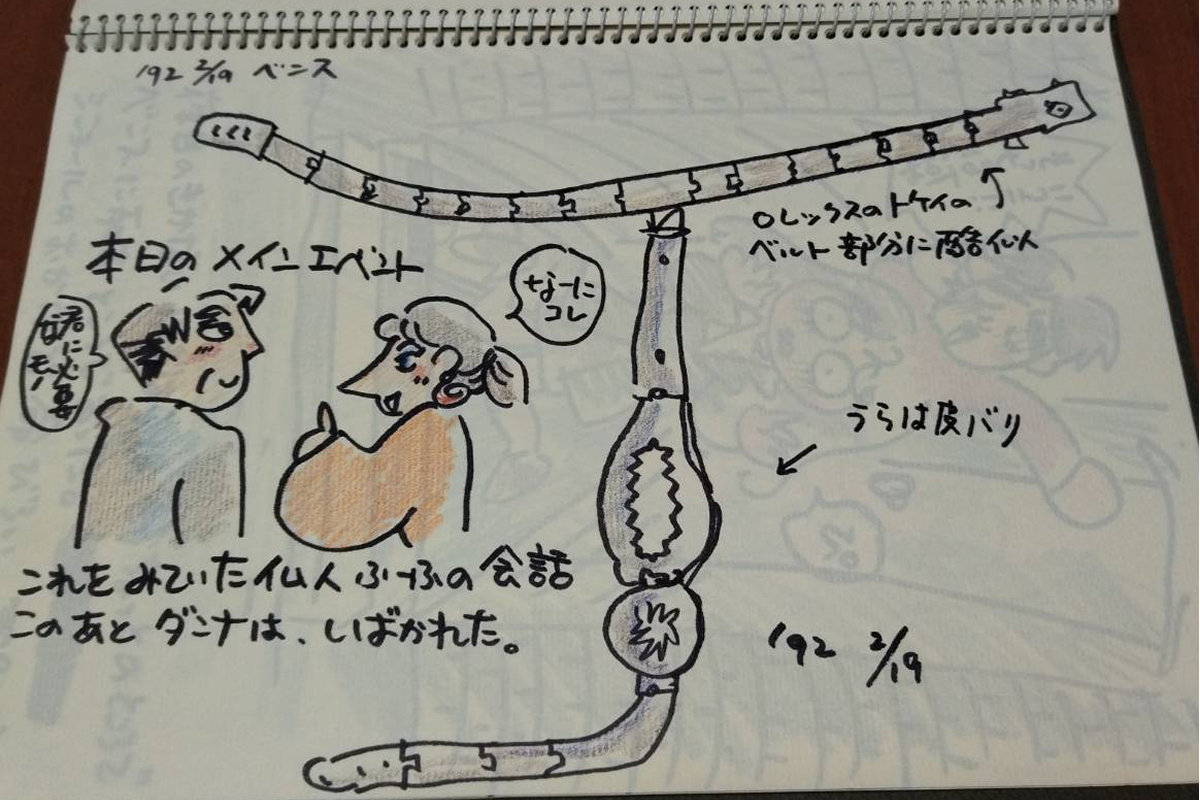 '92 2/19 ベニス
ロレックスのトケイの
ベルト部分に酷似
本日のメインエベント
なーに
コレ
君に必要
なモノ
うらは皮バリ
これをみていた仏人ふーふの会話
このあとダンナは、しばかれた。
'92 2/19